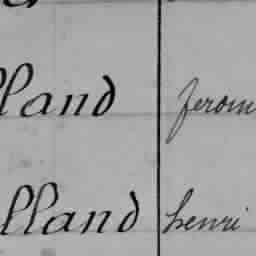 lland jerom
lland henri